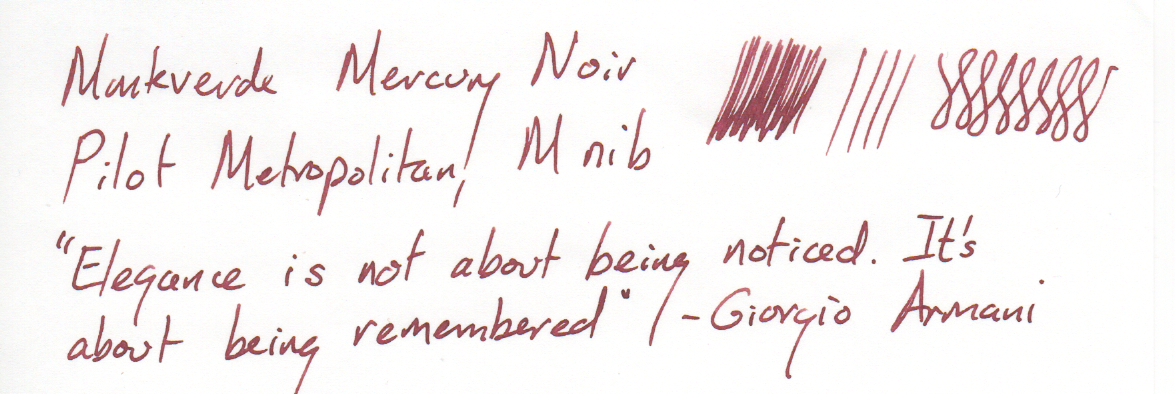 Monteverde Mercury Noir
Pilot Metropolitan, M nib
"Elegance is not about being noticed. It's
about being remembered" -Giorgio Armani